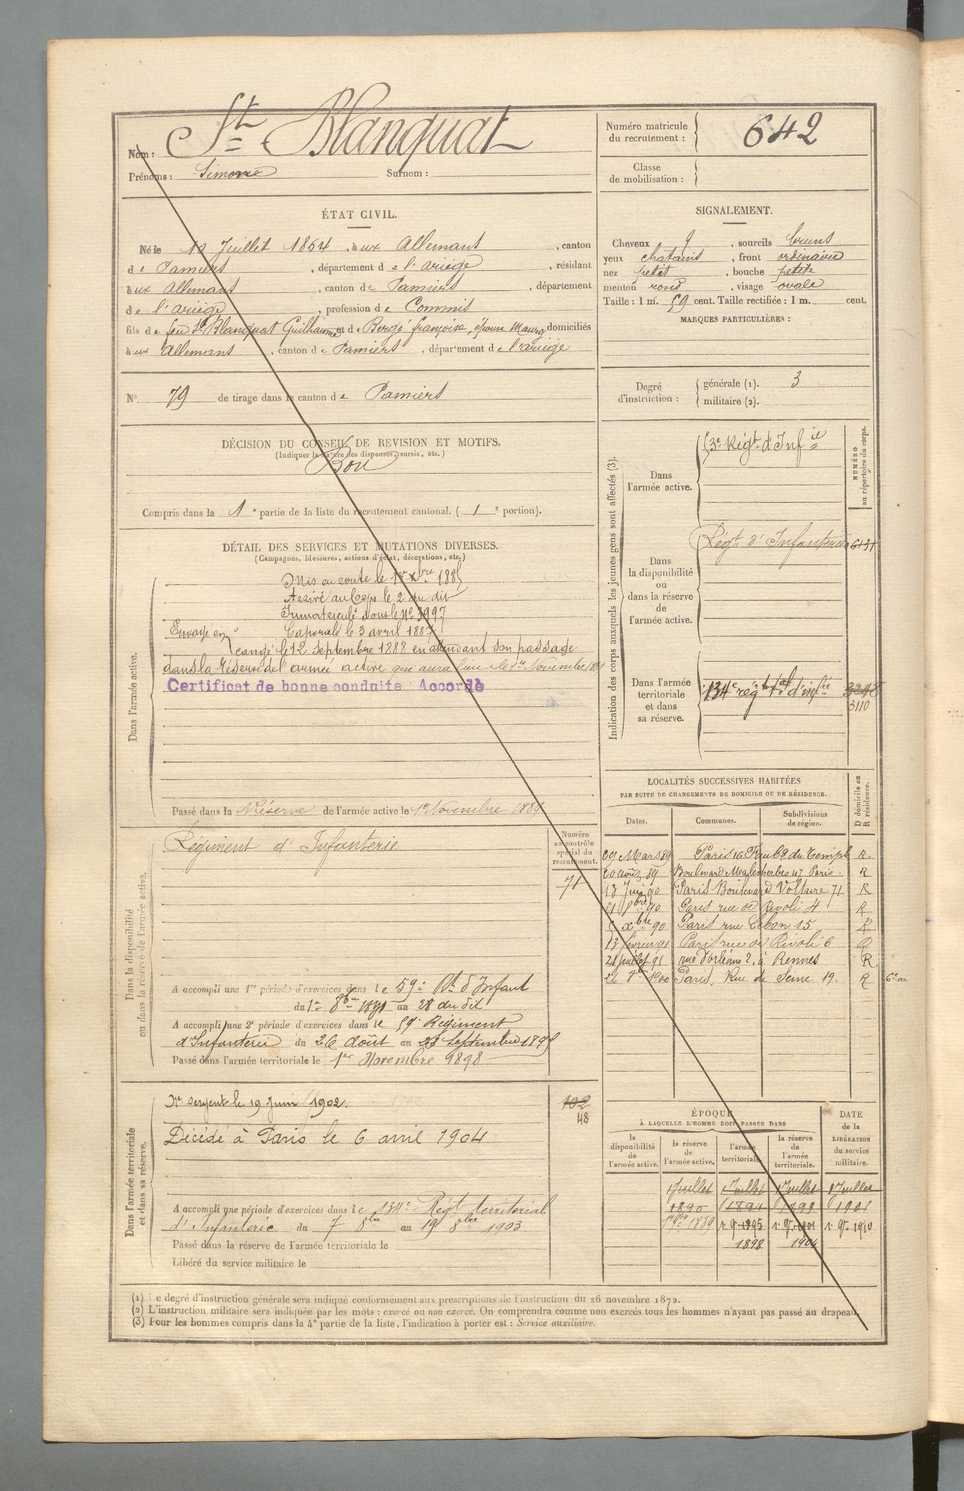 Nom : St Blanquat
Prénoms : Simon Surnom :
Numéro matricule du recrutement : 642
Classe de mobilisation :
ÉTAT CIVIL.
Né le 12 Juillet 1864, à aux Allemans, canton
de Pamiers, département de l'ariège, résidant
à aux Allemans, canton de Pamiers, département
de l'ariège, profession de Commis
fils de feu St Blanquat Guilhaume et de Bergé françoise, épouse Mauro, domiciliés
à aux Allemans, canton de Pamiers, département de l'ariège
N° 79 de tirage dans le canton de Pamiers
DÉCISION DU CONSEIL DE REVISION ET MOTIFS.
(Indiquer la nature des dispenses, sursis, etc.)
Bon
Compris dans la 1e partie de la liste du recrutement cantonal. (1e portion).
DÉTAIL DES SERVICES ET MUTATIONS DIVERSES.
(Campagnes, blessures, actions d'éclat, décorations, etc.)
Dans l'armée active.
Mis en route le 1er Xbre 1885
Arrivé au Corps le 2 du dit
Immatriculé sous le N° 3997
Caporal le 3 avril 1887
Envoyé en
congé le 12 septembre 1888 en attendant son passage
dans la réserve de l'armée active qui aura lieu le 1er Novembre
Certificat de bonne conduite Accordé
Passé dans la Réserve de l'armée active le 1er Novembre 1889
Dans la disponibilité ou dans la réserve de l'armée active.
Régiment d'Infanterie
Numéro au contrôle spécial du recrutement.
71
A accompli une 1re période d'exercices dans le 59e Rt d'Infant
du 1er 8bre 1891 au 28 du dit
A accompli une 2e période d'exercices dans le 59e Régiment
d'Infanterie du 26 Août au 22 septembre 1895
Passé dans l'armée territoriale le 1er Novembre 1898
Dans l'armée territoriale et dans sa réserve.
Né sergent le 19 Juin 1902.
102
48
Décédé à Paris le 6 avril 1904
A accompli une période d'exercices dans le 134e Régt territorial
d'Infanterie du 7 8bre au 19 8bre 1903
Passé dans la réserve de l'armée territoriale le
Libéré du service militaire le
SIGNALEMENT.
Cheveux , sourcils bruns
yeux chatains, front ordinaire
nez petit, bouche petite
menton rond, visage ovale
Taille : 1 m. 59 cent. Taille rectifiée : 1 m. cent.
MARQUES PARTICULIÈRES :
Degré d'instruction : générale (1). 3
militaire (2).
Indication des corps auxquels les jeunes gens sont affectés (3).
NUMÉRO au répertoire du corps.
Dans l'armée active. 3e Régt d'Infie
Dans la disponibilité ou dans la réserve de l'armée active. Régt d'Infanterie 6131
Dans l'armée territoriale et dans sa réserve. 134e régt tal d'infie
3110
LOCALITÉS SUCCESSIVES HABITÉES
PAR SUITE DE CHANGEMENTS DE DOMICILE OU DE RÉSIDENCE.
Dates. Communes. Subdivisions de région. D domicile ou R résidence.
29 Mars 89 Paris 16 Fau bg du Temple R.
20 août 89 Boulevard Malesherbes 47 Paris. R
13 Juin 90 Paris Boulevard Voltaire 71 R
21 8bre 90 Paris rue de Rivoli 4 R
Xbre 90 Paris rue Lobon 15 R
13 février 91 Paris rue de Rivoli 6 R
21 juillet 91 rue d'orléans 2, à Rennes R.
26 8bre 1900 Paris, Rue de Seine 19. R
ÉPOQUE
À LAQUELLE L'HOMME DOIT PASSER DANS
DATE de la LIBÉRATION du service militaire.
la disponibilité de l'armée active. la réserve de l'armée active. l'armée territoriale. la réserve de l'armée territoriale.
1 Juillet 1 Juillet 1 Juillet 1 Juillet
1890 1894 1899 1901
1 9bre 1889 1 9 1895 1 9 1901 1 9 1910
1898 1904
(1) Le degré d'instruction générale sera indiqué conformément aux prescriptions de l'instruction du 26 novembre 1872.
(2) L'instruction militaire sera indiquée par les mots : exercé ou non exercé. On comprendra comme non exercés tous les hommes n'ayant pas passé au drapeau.
(3) Pour les hommes compris dans la 4e partie de la liste, l'indication à porter est : Service auxiliaire.